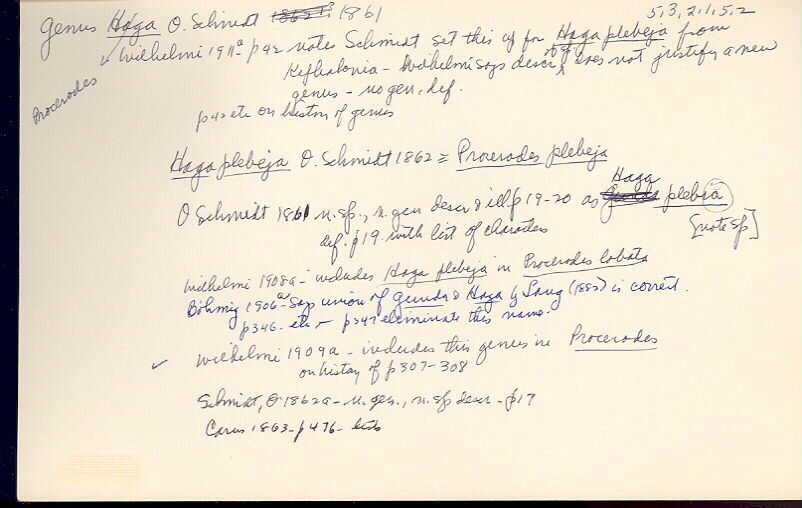 5, 3, 2, 1, 5, 2
Genus Haga O. Schmidt 1862 1861
✓ Wilhelmi 1911a p92 notes Schmidt set this up for Haga plebeja from
Kefhalonia - Wilhelmi says descr of sp does not justify a new
genus - no gen. def.
Procerodes
p42 etc on history of genus
Haga plebeja O. Schmidt 1862 = Procerodes plebeja
Haga
O Schmidt 1861 n.sp., n.gen descr & ill p19-20 as Gunda plebia
def. p19 with list of characters
[note sp]
Wilhelmi 1908a - includes Haga plebeja in Procerodes lobata
Böhmig 1906a - says union of Gunda & Haga by Lang (1882) is correct.
p346 - etc - p347 eliminate this name.
✓ Wilhelmi 1909a - includes this genus in Procerodes
on history of p307-308
Schmidt, O 1862a - n. gen., n. sp descr - p17
Carus 1863 - p476 - lists